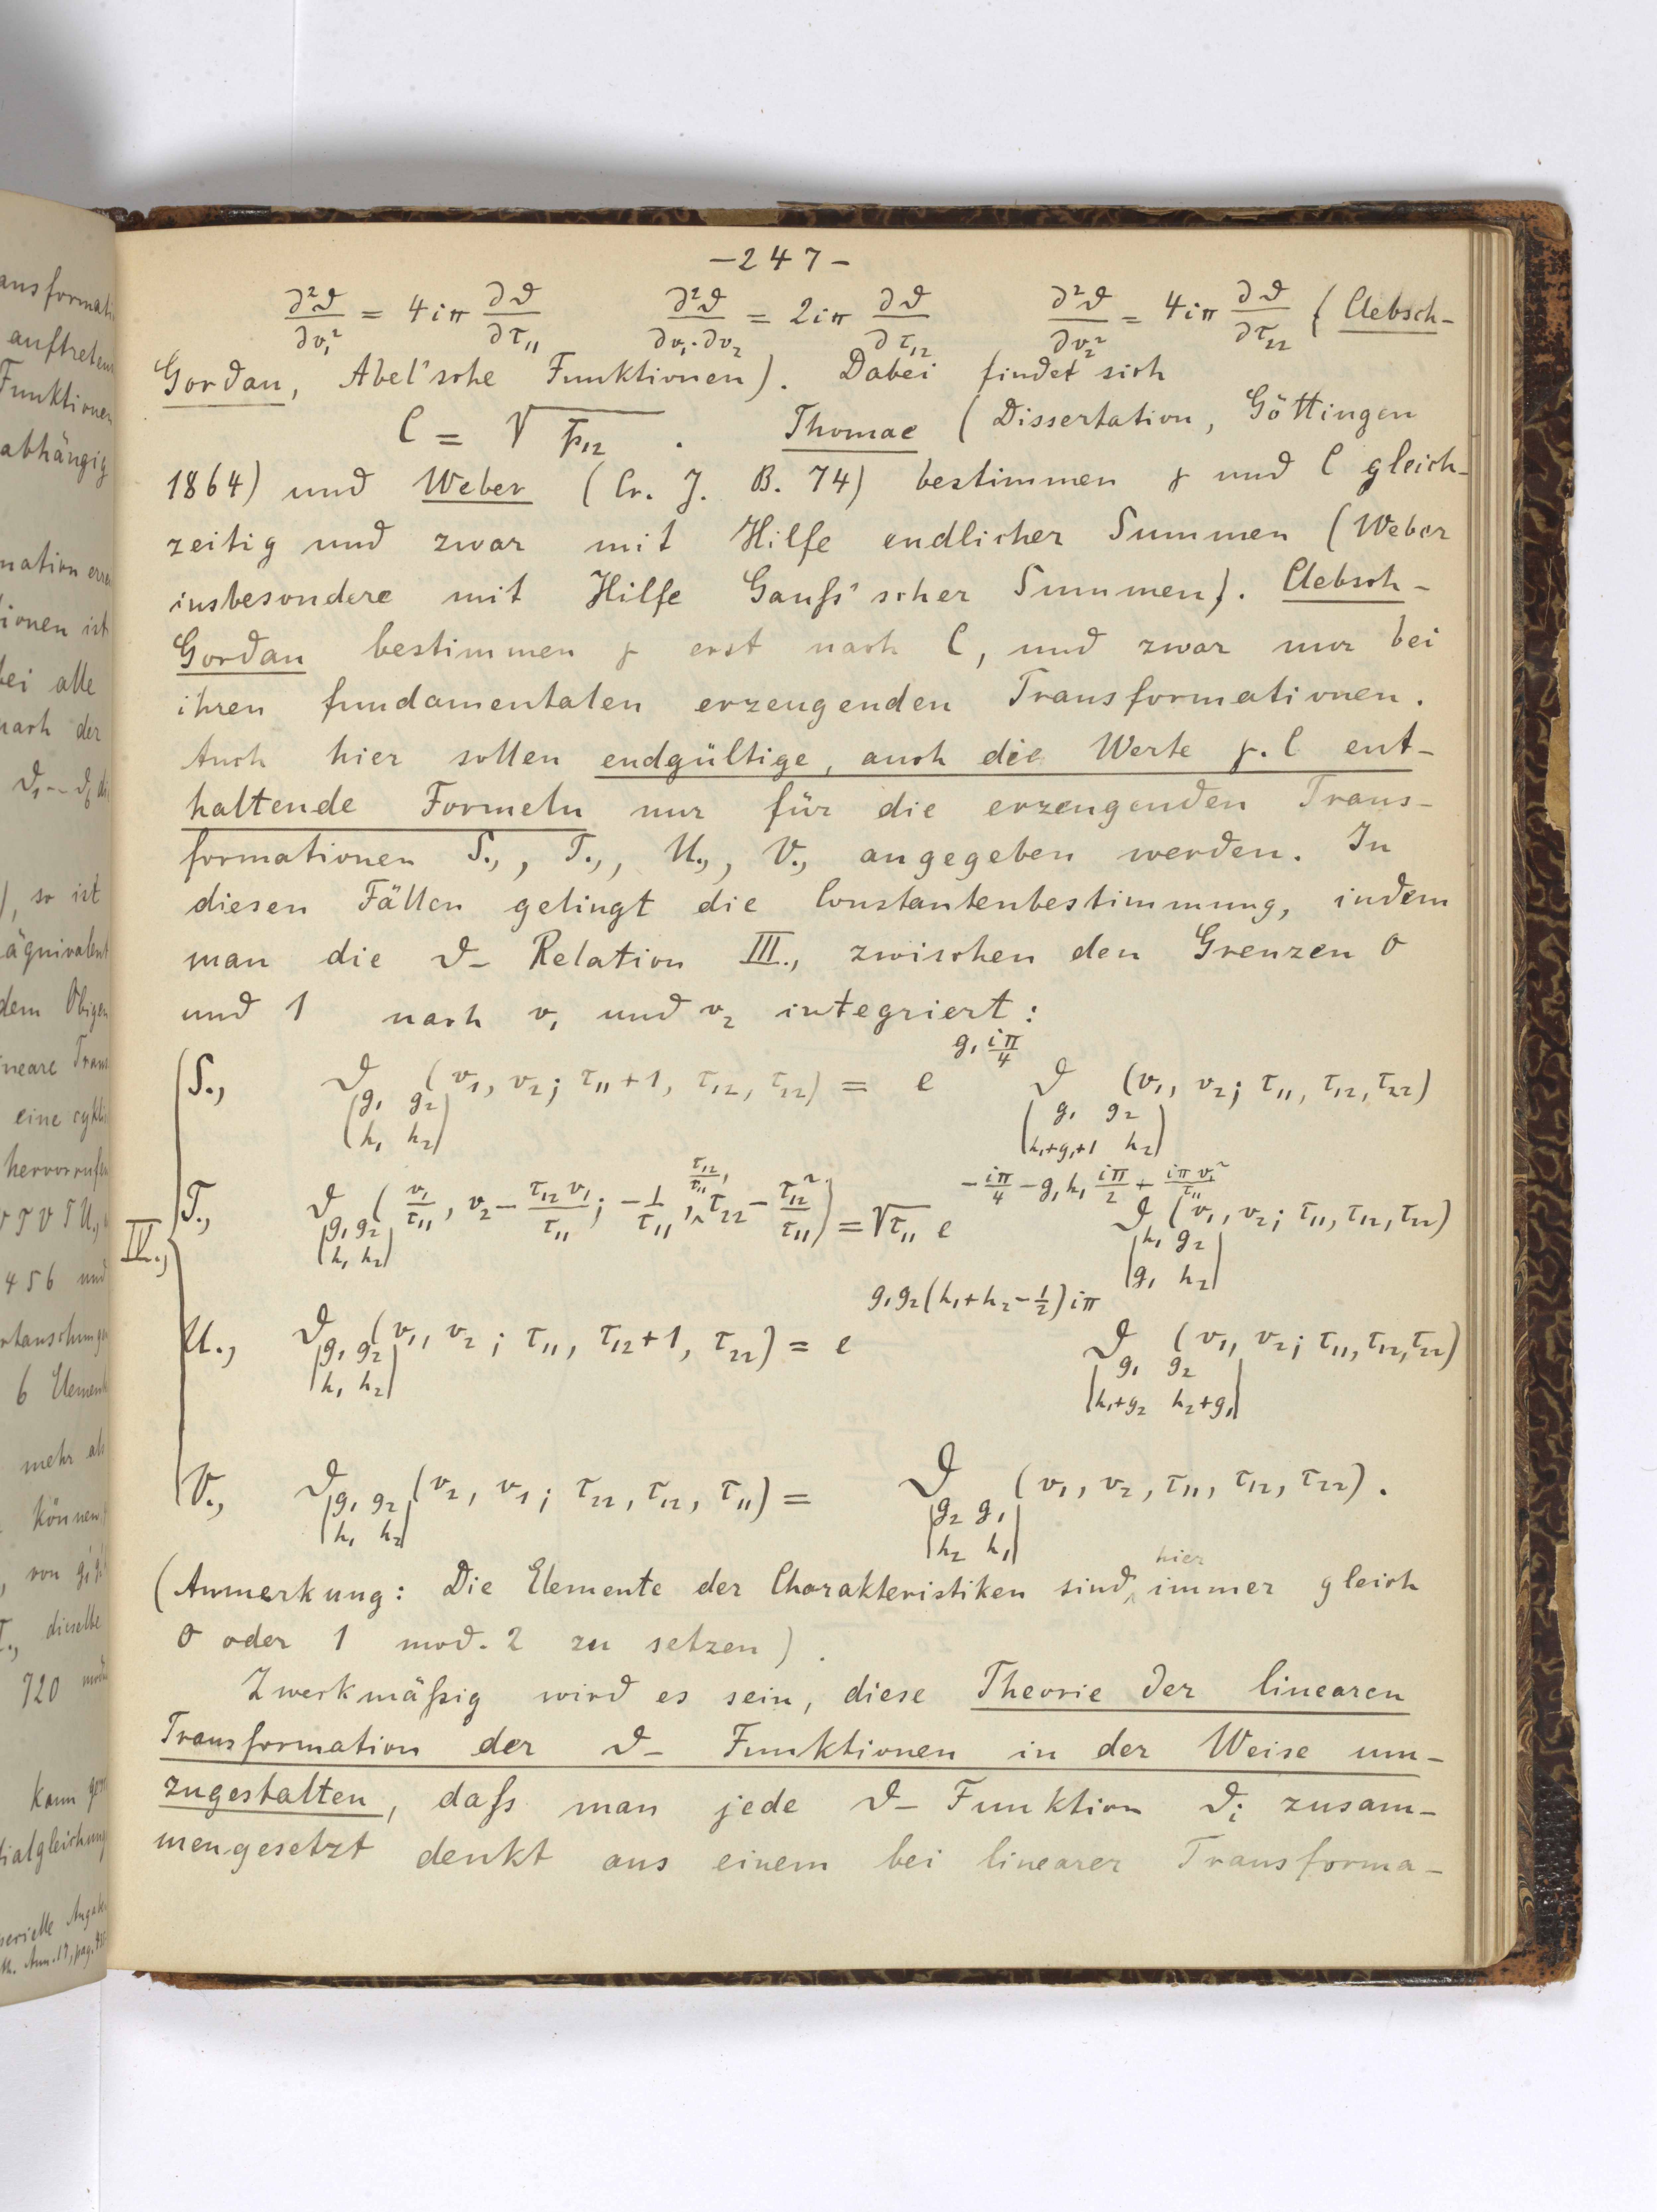 ansformati
auftreten
Funktionen
abhängig
mation
ionen ist
bei alle
nach der
), so ist
äquivalent
dem Obigen
neare Trans
eine cykli
hervorrufen
456 und
rtauschungen
6 Element
mehr als
können,
von
dieselbe
720
kann
tialgleichung
Angaben
Ann. 17, pag.
-247-
∂²ϑ/∂v₁² = 4iπ ∂ϑ/∂τ₁₁ ∂²ϑ/∂v₁·∂v₂ = 2iπ ∂ϑ/∂τ₁₂ ∂²ϑ/∂v₂² = 4iπ ∂ϑ/∂τ₂₂ (Clebsch-
Gordan, Abel'sche Funktionen). Dabei findet sich
C = √p₁₂ . Thomae (Dissertation, Göttingen
1864) und Weber (Cr. J. B. 74) bestimmen γ und C gleich-
zeitig und zwar mit Hilfe endlicher Summen (Weber
insbesondere mit Hilfe Gauß'scher Summen). Clebsch-
Gordan bestimmen γ erst nach C, und zwar nur bei
ihren fundamentalen erzeugenden Transformationen.
Auch hier sollen endgültige, auch die Werte γ. C ent-
haltende Formeln nur für die erzeugenden Trans-
formationen S., T., U., V., angegeben werden. In
diesen Fällen gelingt die Constantenbestimmung, indem
man die ϑ- Relation III., zwischen den Grenzen 0
und 1 nach v₁ und v₂ integriert:
IV.,
S., ϑ|g₁ g₂; h₁ h₂| (v₁, v₂; τ₁₁+1, τ₁₂, τ₂₂) = e^{g₁ iπ/4} ϑ|g₁ g₂; h₁+g₁+1 h₂| (v₁, v₂; τ₁₁, τ₁₂, τ₂₂)
T., ϑ|g₁ g₂; h₁ h₂| (v₁/τ₁₁, v₂ - τ₁₂v₁/τ₁₁; -1/τ₁₁, τ₁₂/τ₁₁, τ₂₂ - τ₁₂²/τ₁₁) = √τ₁₁ e^{-iπ/4 - g₁h₁ iπ/2 + iπv₁²/τ₁₁} ϑ|h₁ g₂; g₁ h₂| (v₁, v₂; τ₁₁, τ₁₂, τ₂₂)
U., ϑ|g₁ g₂; h₁ h₂| (v₁, v₂; τ₁₁, τ₁₂+1, τ₂₂) = e^{g₁g₂(h₁+h₂-1/2)iπ} ϑ|g₁ g₂; h₁+g₂ h₂+g₁| (v₁, v₂; τ₁₁, τ₁₂, τ₂₂)
V., ϑ|g₁ g₂; h₁ h₂| (v₂, v₁; τ₂₂, τ₁₂, τ₁₁) = ϑ|g₂ g₁; h₂ h₁| (v₁, v₂, τ₁₁, τ₁₂, τ₂₂).
(Anmerkung: Die Elemente der Charakteristiken sind hier immer gleich
0 oder 1 mod. 2 zu setzen).
Zweckmäßig wird es sein, diese Theorie der linearen
Transformation der ϑ- Funktionen in der Weise um-
zugestalten, daß man jede ϑ- Funktion ϑᵢ zusam-
mengesetzt denkt aus einem bei linearer Transforma-